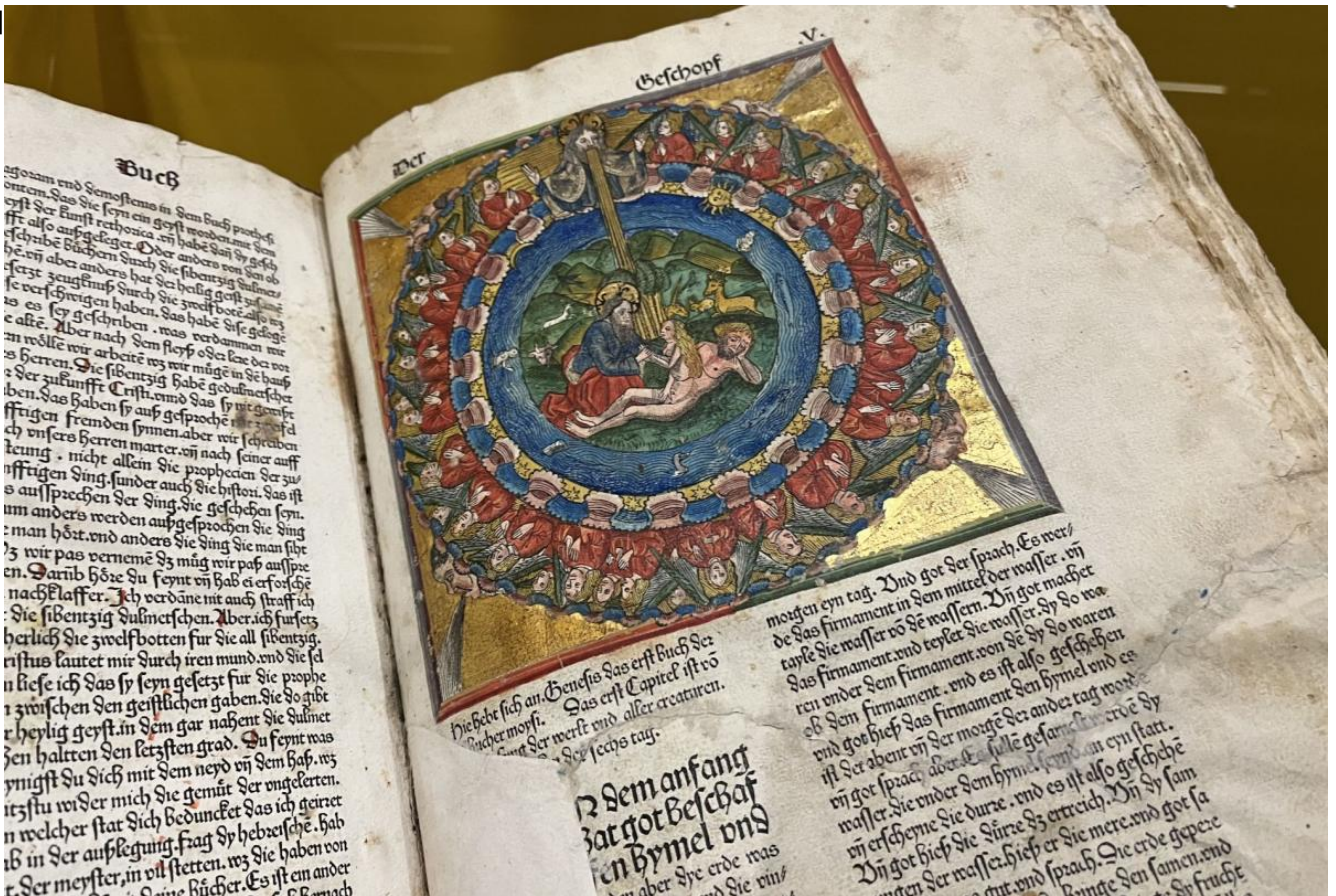 Buch
agoram vnd demostenis in dem buch
das die seyn ein geyst worden. mit dem
eyst der kunst rethorica. vñ habē dañ dy gesch
fft also außgeleget. Oder anders von den ob
eschribē büchern durch die sibentzig dulmetz
hē. vñ aber anders hat der heilig geist
setzt zeugknuß durch die zwelfbotē. also wz
se verschwigen haben. das habē dise
as es sey geschriben. was verdammen wir
e altē. Aber nach dem fleyß oder lere der vor
en wölle wir arbeitē wz wir mügē in dē hauß
s herren. Die sibentzig habē gedulmetschet
r der zukunfft Cristi. vnnd das sy nit gewißt
ben. das haben sy auß gesprochē
fftigen fremden synnen. aber wir schreiben
ch vnsers herren marter. vñ nach seiner auff
steung. nicht allein die prophecien der zu⸗
nfftigen ding. sunder auch die histori. das ist
s aussprechen der ding. die geschehen seyn.
um anders werden außgesprochen die ding
e man hört. vnd anders die ding die man siht
z wir pas vernemē dz müg wir paß ausspre
en. Darüb höre du feynt vñ hab ei erforschē
nachklaffer. Ich verdāne nit auch straff ich
die sibentzig dulmetschen. Aber. ich fursetz
herlich die zwelfbotten fur die all sibentzig.
ristus lautet mir durch iren mund. vnd die sel
n liese ich das sy seyn gesetzt fur die prophe
zwischen den geistlichen gaben. die do gibt
r heylig geyst. in dem gar nahent die dulmet
en haltten den letzsten grad. Du feynt was
ynigst du dich mit dem neyd vñ dem haß. wz
tzstu wider mich die gemüt der vngelerten.
n welcher stat dich beduncket das ich geirret
b in der außlegung. frag dy hebreischē. hab
t. der meyster, in vil stetten. wz die haben von
bücher. Es ist ein ander
Der Geschopf .V.
Hie hebt sich an. Genesis das erst buch der
bucher moysi. Das erst Capitel ist vō
der werlt vnd aller creaturen.
der sechs tag.
N dem anfang
hat got beschaf
fen hymel vnd
aber dye erde was
vnd die vin⸗
morgen eyn tag. Vnd got der sprach. Es wer⸗
de das firmament in dem mittel der wasser. vñ
tayle die wasser vō dē wassern. Vñ got machet
das firmament. vnd teylet die wasser. dy do wa⸗
ren vnder dem firmament. von dē dy do waren
ob dem firmament. vnd es ist also geschehen
vnd got hieß das firmament den hymel vnd es
ist der abent vñ der morgē der ander tag worde
vñ got sprach aber. Es sullē gesamelt werdē dy
wasser. die vnder dem hymel seynd an eyn statt.
vñ erscheyne die durre. vnd es ist also geschehē
Vñ got hieß die dürre dz ertreich. Vñ dy sam
ngen der wasser. hieß er die mere. vnd got sa
gut. vnd sprach. Die erde gepere
den samen. vnd
frucht